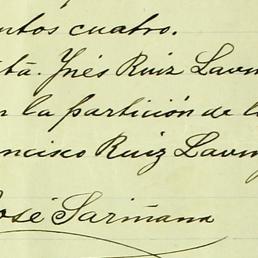 ntos cuatro.
ta. Ynés Ruiz Lavin
n la partición de l
ncisco Ruiz Lavin
José Sariñana